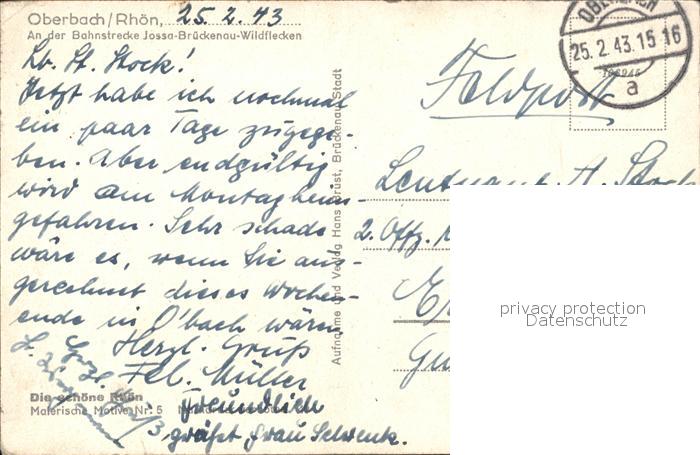 Oberbach/Rhön, 25.2.43
An der Bahnstrecke Jossa-Brückenau-Wildflecken
Lb. Lt. Stock!
Jetzt habe ich nochmal
ein paar Tage zugege-
ben. Aber endgültig
wird am Montag heim-
gefahren. Sehr schade
wäre es, wenn Sie aus-
gerechnet dieses Wochen-
ende in O'bach wären.
Herzl. Gruß
Fel. Müller
Herzl. Gruß
Freundlich
grüßt Frau Schwenk.
Die schöne Rhön
Malerische Motive Nr. 5
Aufnahme und Verlag Hans Brüst, Brückenau-Stadt
25.2.43.15 16
a
Feldpost
Leutnant A. Stock
2. Offz.
privacy protection
Datenschutz